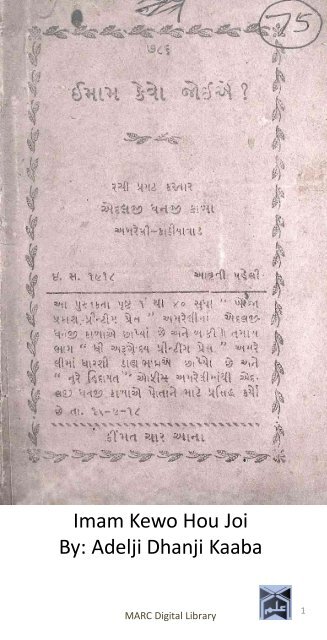 75
૭૮૬
ઈમામ કેવો જોઈએ ?
રચી પ્રગટ કરનાર
એદલજી ધનજી કાબા
અમરેલી-કાઠીયાવાડ
ઇ. સ. ૧૯૧૮ આવૃતી પહેલી
આ પુસ્તકના પૃષ્ટ ૧ થી ૪૦ સુધા "
પ્રકાશ પ્રીન્ટીંગ પ્રેસ " અમરેલીમાં એદલજી
ધનજી કાબાએ છાપ્યાં છે અને બાકીનો તમામ
ભાગ " શ્રી અરૂણોદય પ્રીન્ટીંગ પ્રેસ " અમરે
લીમાં ધારશી ડાહ્યાભાઇએ છાપ્યો છે અને
" નુરે હિદાયત " ઓફીસ અમરેલીમાંથી એદ-
લજી ધનજી કાબાએ પોતાને માટે પ્રસિદ્ધ કર્યો
છે તા. ૬૫-૫-૧૮
કીંમત ચાર આના
Imam Kewo Hou Joi
By: Adelji Dhanji Kaaba
MARC Digital Library
1